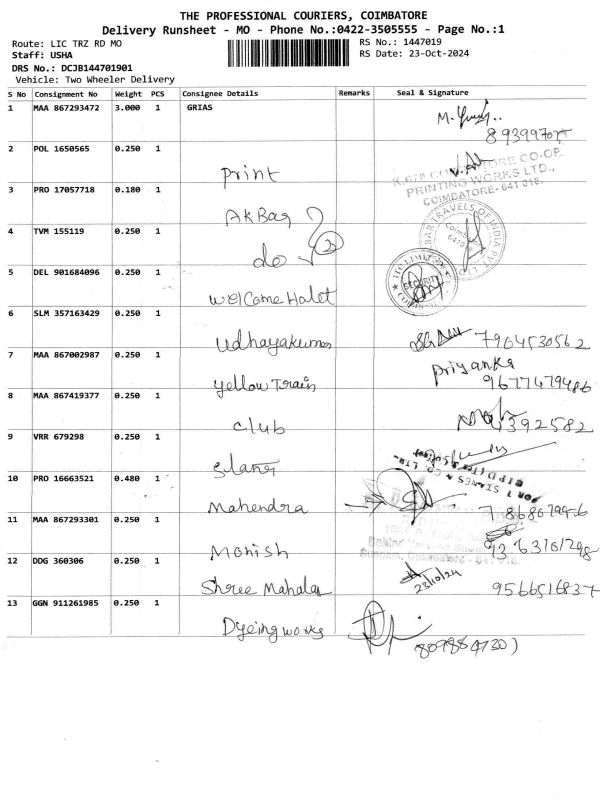 THE PROFESSIONAL COURIERS, COIMBATORE
Delivery Runsheet - MO - Phone No.:0422-3505555 - Page No.:1
Route: LIC TRZ RD MO
RS No.: 1447019
Staff: USHA
RS Date: 23-Oct-2024
DRS No.: DCJB144701901
Vehicle: Two Wheeler Delivery
S No Consignment No Weight PCS Consignee Details Remarks Seal & Signature
1 MAA 867293472 3.000 1 GRIAS
2 POL 1650565 0.250 1 print
K.678 CO-OP
PRINTING WORKS LTD.,
COIMBATORE- 641 018.
3 PRO 17057718 0.180 1 AKBar
TRAVELS OF INDIA PVT.
Coimbatore
4 TVM 155119 0.250 1 do 2
5 DEL 901684096 0.250 1 welcome Halet
ITC LIMITED
SECURITY
6 SLM 357163429 0.250 1 Udhayakumar 7904530562
7 MAA 867002987 0.250 1 yellow Train priyanka
9677479486
8 MAA 867419377 0.250 1 club 392582
9 VRR 679298 0.250 1 Stans
FOR T STANES & CO. LTD.
10 PRO 16663521 0.480 1 Mahendra
11 MAA 867293301 0.250 1 Monish
12 DDG 360306 0.250 1 Shree Mahalax 23/10/24 9566516837
13 GGN 911261985 0.250 1 Dyeing works